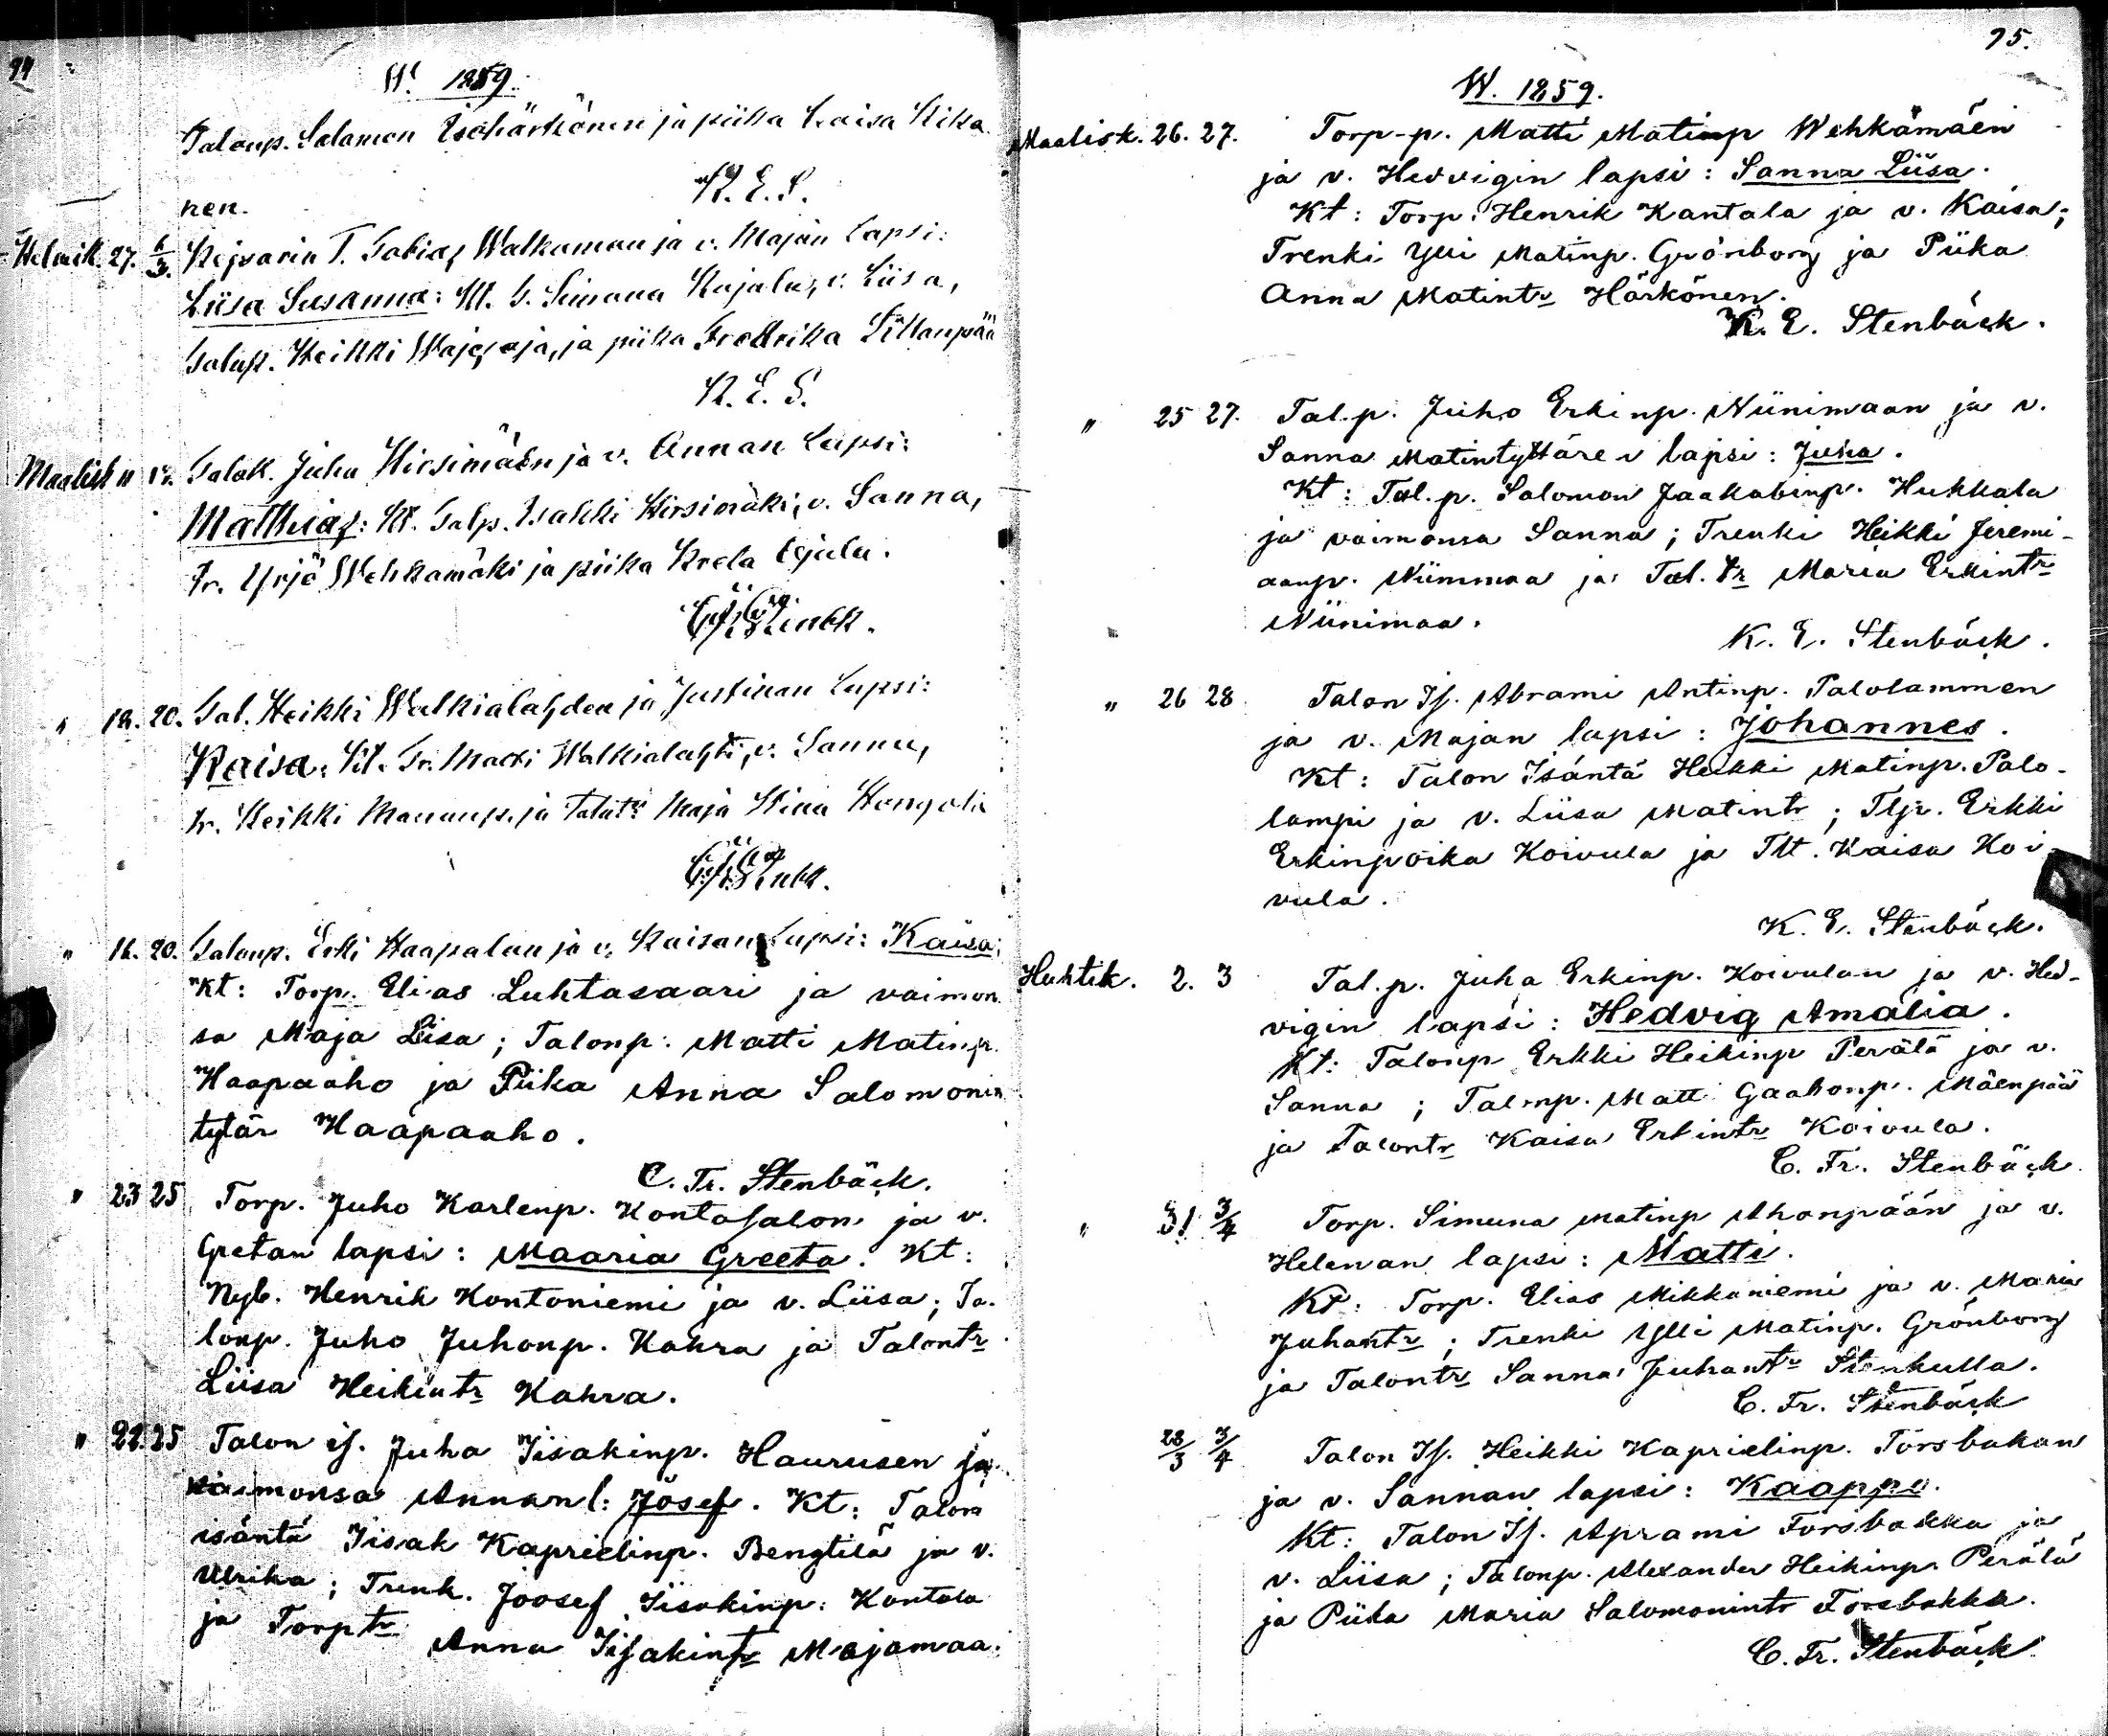 94
W. 1859.
Taloup. Salamon Isohärkönen ja piika Kaisa Kika
nen.
K. E. S.
Helmik. 27. 6/3. Kejsarin T. Tobias Walkaman ja v. Majan Lapsi:
Liisa Susanna: Kt. T. Simana Rajala, v. Liisa,
Talup. Heikki Wajoja, ja piika Fredrika Sillanpää
K. E. S.
Maalisk 11 12. Talok. Juha Hirsimäen ja v. Annan Lapsi:
Matthias: Kt. Talp. Isakki Hirsimäki, v. Sanna,
Tr. Yrjö Wehkamäki ja piika Kreta Ojala.
" 18. 20. Tal. Heikki Walkialahden ja Justinan Lapsi:
Kaisa. Kt. Tr. Matti Walkialahti, v. Sanna,
tr. Heikki Mananp. ja Talutr Maja Stina Hangola
" 16. 20. Talonp. Erki Haapalan ja v. Kaisan Lapsi: Kaisa;
Kt: Torp. Elias Luhtasaari ja vaimon
sa Maja Liisa; Talonp. Matti Matinp.
Haapaaho ja Piika Anna Salomonin
tytär Haapaaho.
C. Fr. Stenbäck.
" 23 25 Torp. Juho Karlenp. Kontosalon ja v.
Gretan lapsi: Maaria Greeta. Kt:
Nyb. Henrik Kontoniemi ja v. Liisa; Ta-
lonp. Juho Juhonp. Kahra ja Talontr
Liisa Heikintr Kahra.
" 22. 25 Talon is. Juha Iisakinp. Haurusen ja
vaimonsa Annan l: Josef. Kt: Talon
isäntä Iisak Kaprielinp. Bengtilä ja v.
Ulrika; Trenk. Joosef Iisakinp: Kantola
ja Torptr Anna Iisakintr Majamaa.
95.
W. 1859.
Maalisk. 26. 27. Torp-p. Matti Matinp Wehkämäen
ja v. Hedvigin lapsi: Sanna Liisa.
Kt: Torp. Henrik Kantala ja v. Kaisa;
Trenki Ylli Matinp. Grönborg ja Piika
Anna Matintr Härkönen.
K. E. Stenbäck.
" 25 27. Tal.p. Juho Erkinp. Niinimaan ja v.
Sanna Matintyttären lapsi: Juha.
Kt: Tal.p. Salomon Jaakabinp. Hukkala
ja vaimonsa Sanna; Trenki Heikki Jeremi-
aanp. Niinimaa ja Tal. Tr Maria Erkintr
Niinimaa.
K. E. Stenbäck.
" 26 28 Talon Is. Abrami Antinp. Palolammen
ja v. Majan lapsi: Johannes.
Kt: Talon Isäntä Heikki Matinp. Palo-
lampi ja v. Liisa Matintr; Tlp. Erkki
Erkinpoika Koivula ja Tlt. Kaisa Koi-
vula.
K. E. Stenbäck.
Huhtik. 2. 3 Tal.p. Juha Erkinp. Koivulan ja v. Hed-
vigin lapsi: Hedvig Amalia.
Kt: Talonp Erkki Heikinp Perälä ja v.
Sanna; Talonp. Matti Gaabonp. Mäenpää
ja Talontr Kaisa Erkintr Koivula.
C. Fr. Stenbäck
" 31 3/4 Torp. Simuna Matinp Ahonpään ja v.
Helenan lapsi: Matti.
Kt: Torp. Elias Mikkaniemi ja v. Maria
Juhantr; Trenki Ylli Matinp. Grönborg
ja Talontr Sanna Juhantr Stenkulla.
C. Fr. Stenbäck
28/3 3/4 Talon Is. Heikki Kaprielinp. Forsbakan
ja v. Sannan lapsi: Kaappo.
Kt: Talon Is. Aprami Forsbakka ja
v. Liisa; Talonp. Alexander Heikinp. Perälä
ja Piika Maria Salomonintr Forsbakka.
C. Fr. Stenbäck